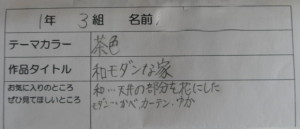 1年 3組 名前
テーマカラー 茶色
作品タイトル 和モダンな家
お気に入りのところ
ぜひ見てほしいところ
和…天井の部分を花にした
モダン…かべ カーテン ゆか